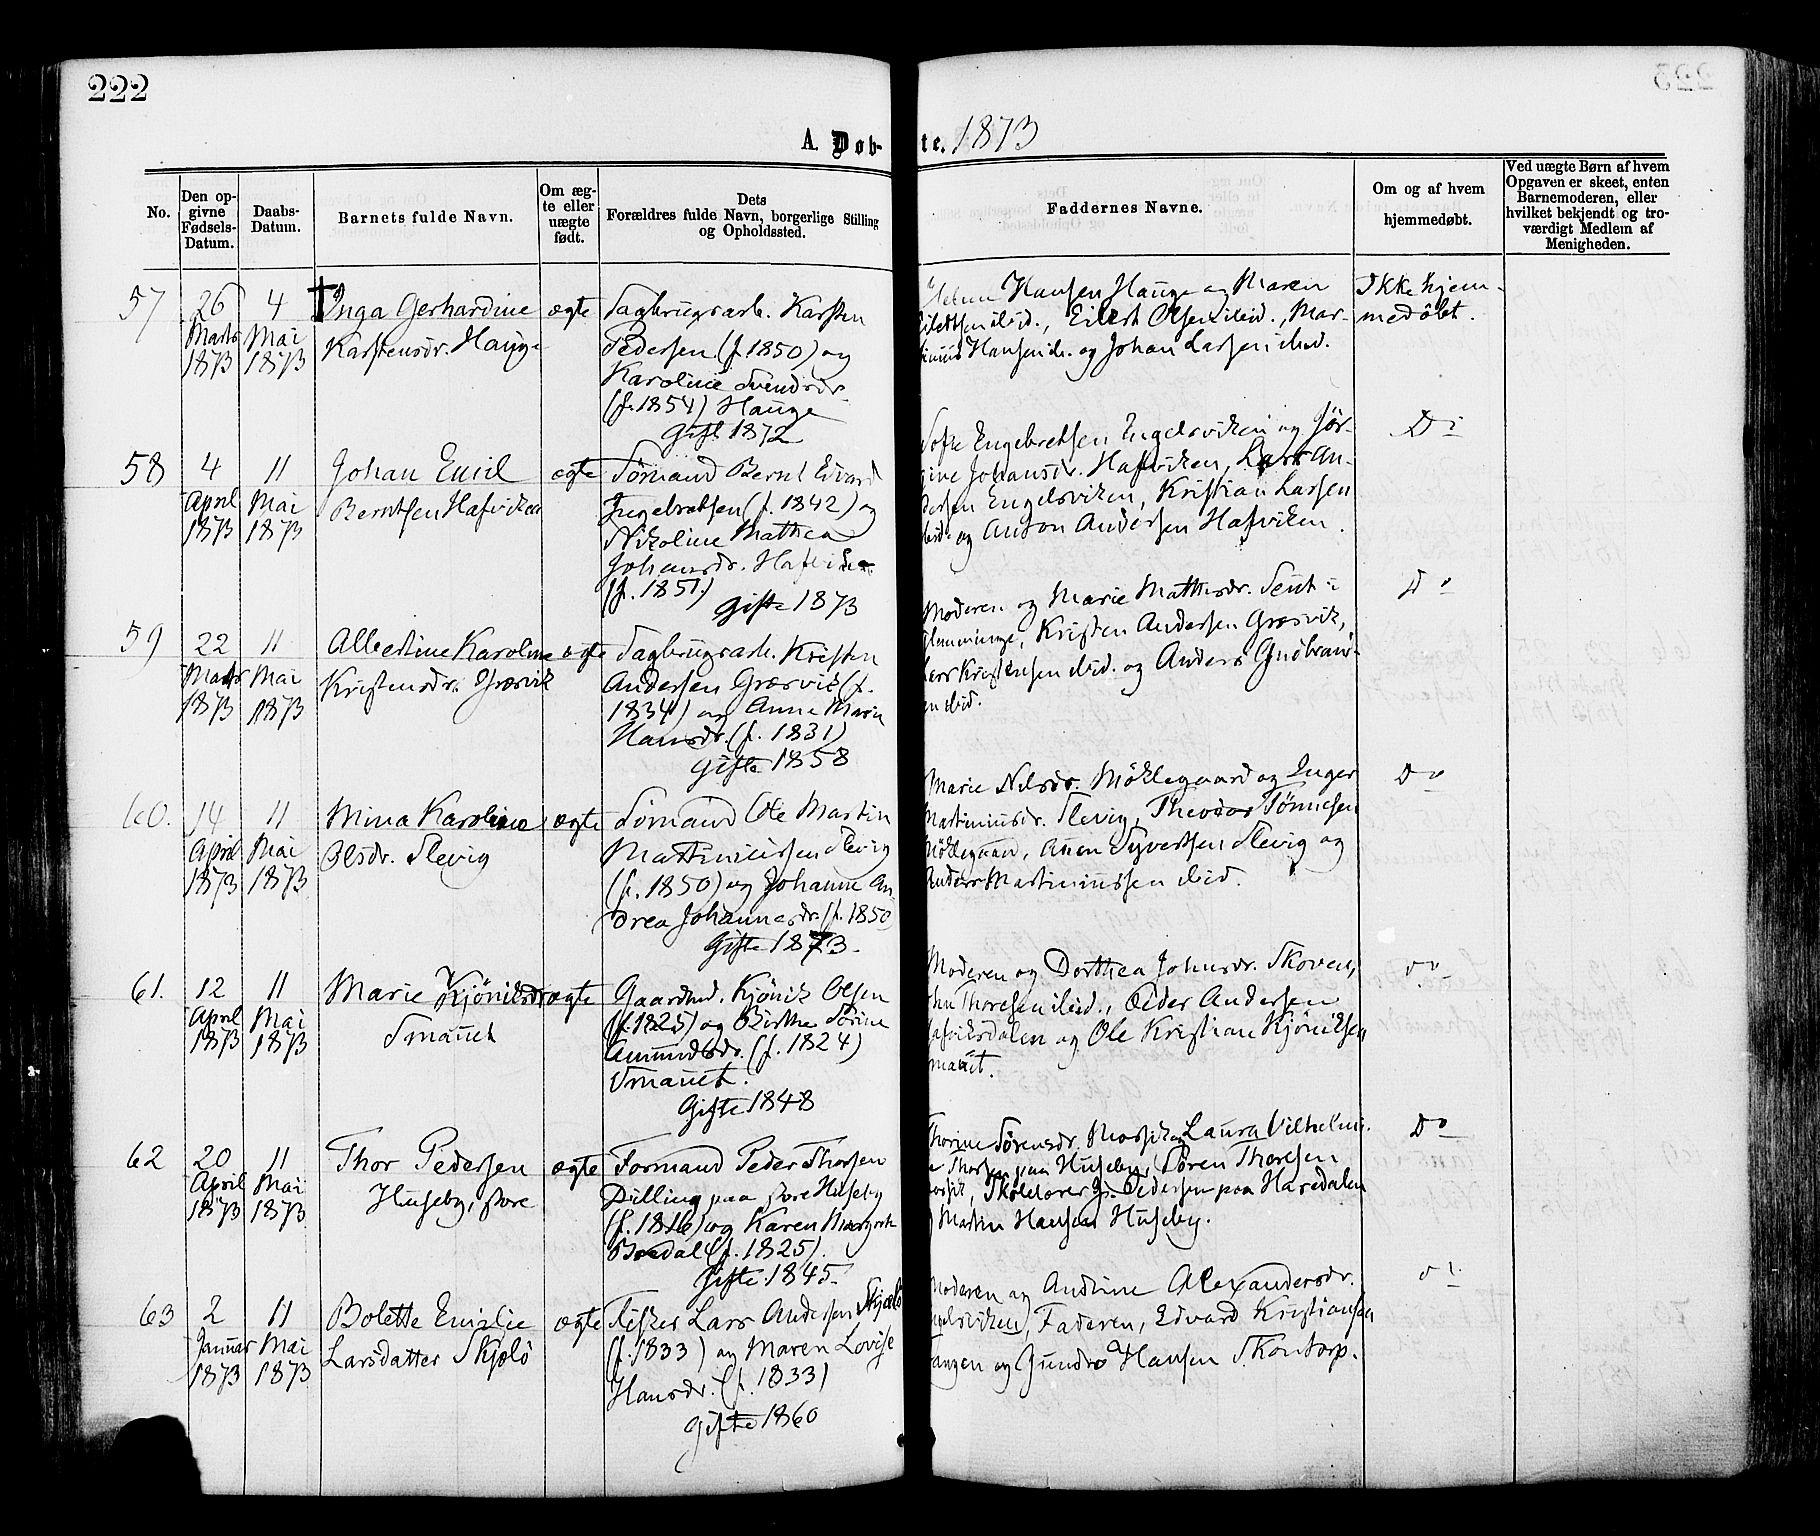 222
A. Døb-
te. 1873
No.
Den op-
givne
Fødsels-
Datum.
Daabs-
Datum.
Barnets fulde Navn.
Om æg-
te eller
uægte
født.
Dets
Forældres fulde Navn, borgerlige Stilling
og Opholdssted.
Faddernes Navne.
Om og af hvem
hjemmedøbt.
Ved uægte Børn af hvem
Opgaven er skeet, enten
Barnemoderen, eller
hvilket bekjendt og tro-
værdigt Medlem af
Menigheden.
57
26
Marts
1873
4
Mai
1873
† Inga Gerhardine
Karstensdr. Hauge
ægte
Sagbrugsarb. Karsten
Pedersen (f. 1850) og
Karoline Svendsdr.
(f. 1854) Hauge
Gift 1872
Hansen Hauge og Maren
ibid., Eilert Olsen ibid., Mar-
Hansen ib. og Johan Larsen ibid.
Ikke hjem-
medöbt.
58
4
April
1873
11
Mai
1873
Johan Emil
Berntsen Hafviken
ægte
Sömand Bernt Edvard
Ingebretsen (f. 1842) og
Nikoline Mathea
Johansdr. Hafviken
(f. 1851)
Gifte 1873
Engebretsen Engelsviken og Jör-
gine Johansdr. Hafviken, Lars An-
dersen Engelsviken, Kristian Larsen
ibid. og Anton Andersen Hafviken.
Do
59
22
Marts
1873
11
Mai
1873
Albertine Karoline
Kristensdr. Græsvik
ægte
Sagbrugsarb. Kristen
Andersen Græsvik (f.
1834) og Anne Marie
Hansdr. (f. 1831)
Gifte 1858
Moderen og Marie Mathisdr.
Glemminge, Kristen Andersen Græsvik,
Lars Kristensen ibid. og Anders Gudbrand-
sen ibid.
Do
60.
14
April
1873
11
Mai
1873
Mina Karoline
Olsdr. Slevig
ægte
Sömand Ole Martin
Martiniussen Slevig
(f. 1850) og Johanne An-
drea Johannesdr. (f. 1850
Gifte 1873.
Marie Nilsdr. Möklegaard og Inger
Martiniusdr. Slevig, Theodor Tönnesen
Möklegaard, Anon Syvertsen Slevig og
Anders Martiniussen ibid.
Do
61.
12
April
1873
11
Mai
1873
Marie Kjöniksdr.
Smauet
ægte
Gaardmd. Kjönik Olsen
(f. 1825) og Birthe Sörine
Amundsdr. (f. 1824)
Smauet.
Gifte 1848
Moderen og Dorthea Johnsdr. Skoven,
Thoresen ibid., Peder Andersen
Hafviksdalen og Ole Kristian Kjöniksen
Smauet.
Do
62
20
April
1873
11
Mai
1873
Thor Pedersen
Huseby, store
ægte
Formand Peder Thorsen
Dilling paa store Huseby
(f. 1816) og Karen Margrete
(f. 1825).
Gifte 1845.
Thorine Sörensdr. og Laura Vilhelmi-
ne Thorsen paa Huseby, Sören Thoresen
Pedersen paa Haredalen
Martin Hansen Huseby.
Do
63
2
Januar
1873
11
Mai
1873
Bolette Emilie
Larsdatter Skjælö
ægte
Fisker Lars Andersen Skjælö
(f. 1833) og Maren Lovise
Hansdr. (f. 1833)
Gifte 1860
Moderen og Andrine Alexandersdr.
Engelsviken, Faderen, Edvard Kristiansen
og Gunder Hansen Skontorp.